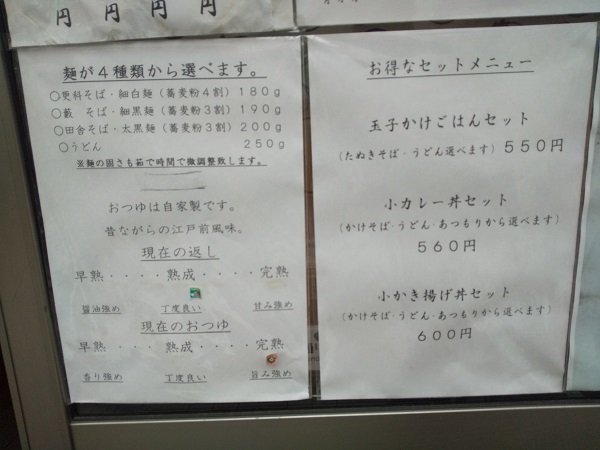 円 円 円 円
麺が４種類から選べます。
○更科そば・細白麺（蕎麦粉４割）１８０ｇ
○藪　そば・細黒麺（蕎麦粉３割）１９０ｇ
○田舎そば・太黒麺（蕎麦粉３割）２００ｇ
○うどん　２５０ｇ
※麺の固さも茹で時間で微調整致します。
おつゆは自家製です。
昔ながらの江戸前風味。
現在の返し
早熟・・・・熟成・・・・完熟
醤油強め　丁度良い　甘み強め
現在のおつゆ
早熟・・・・熟成・・・・完熟
香り強め　丁度良い　旨み強め
お得なセットメニュー
玉子かけごはんセット
（たぬきそば・うどん選べます）５５０円
小カレー丼セット
（かけそば・うどん・あつもりから選べます）
５６０円
小かき揚げ丼セット
（かけそば・うどん・あつもりから選べます）
６００円